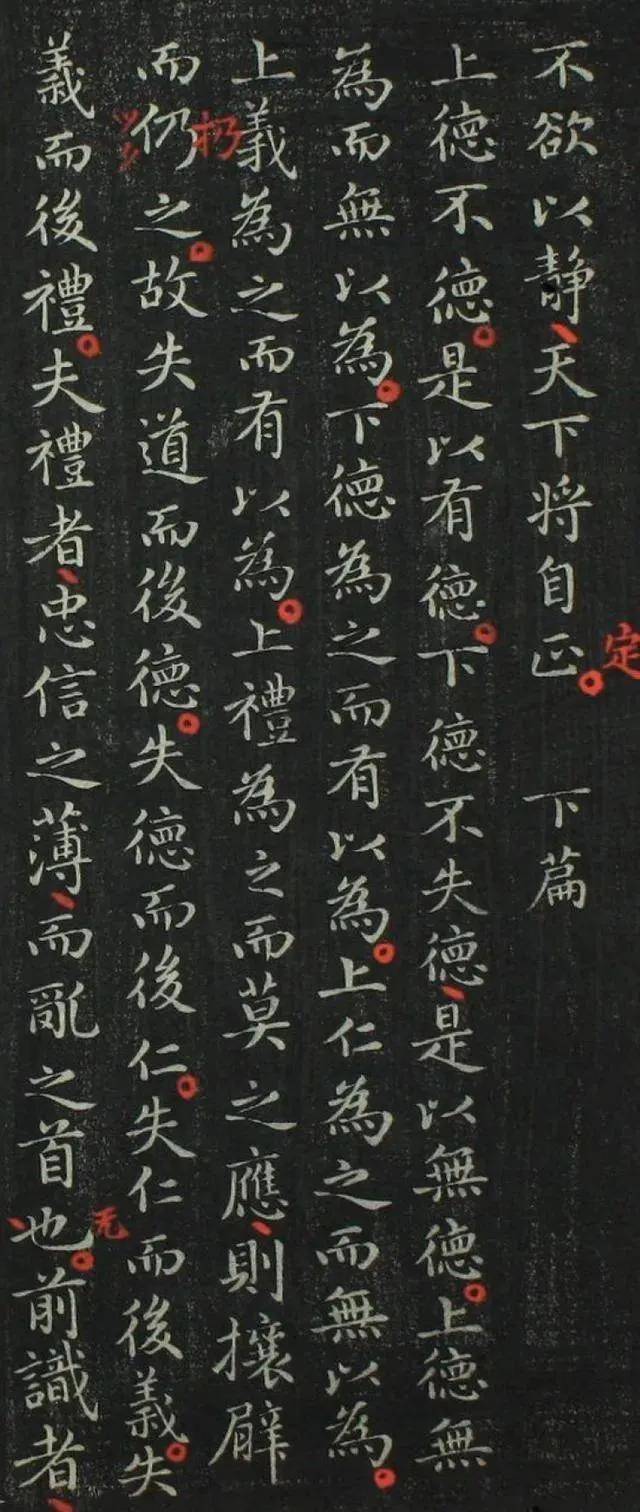 不欲以靜、天下将自正。 下篇
定
上德不德。是以有德。下德不失德、是以無德。上德無
為而無以為。下德為之而有以為。上仁為之而無以為。
上義為之而有以為。上禮為之而莫之應、則攘臂
扔
而仍之。故失道而後德。失德而後仁。失仁而後義。失
義而後禮。夫禮者、忠信之薄、而亂之首也。前識者、
无